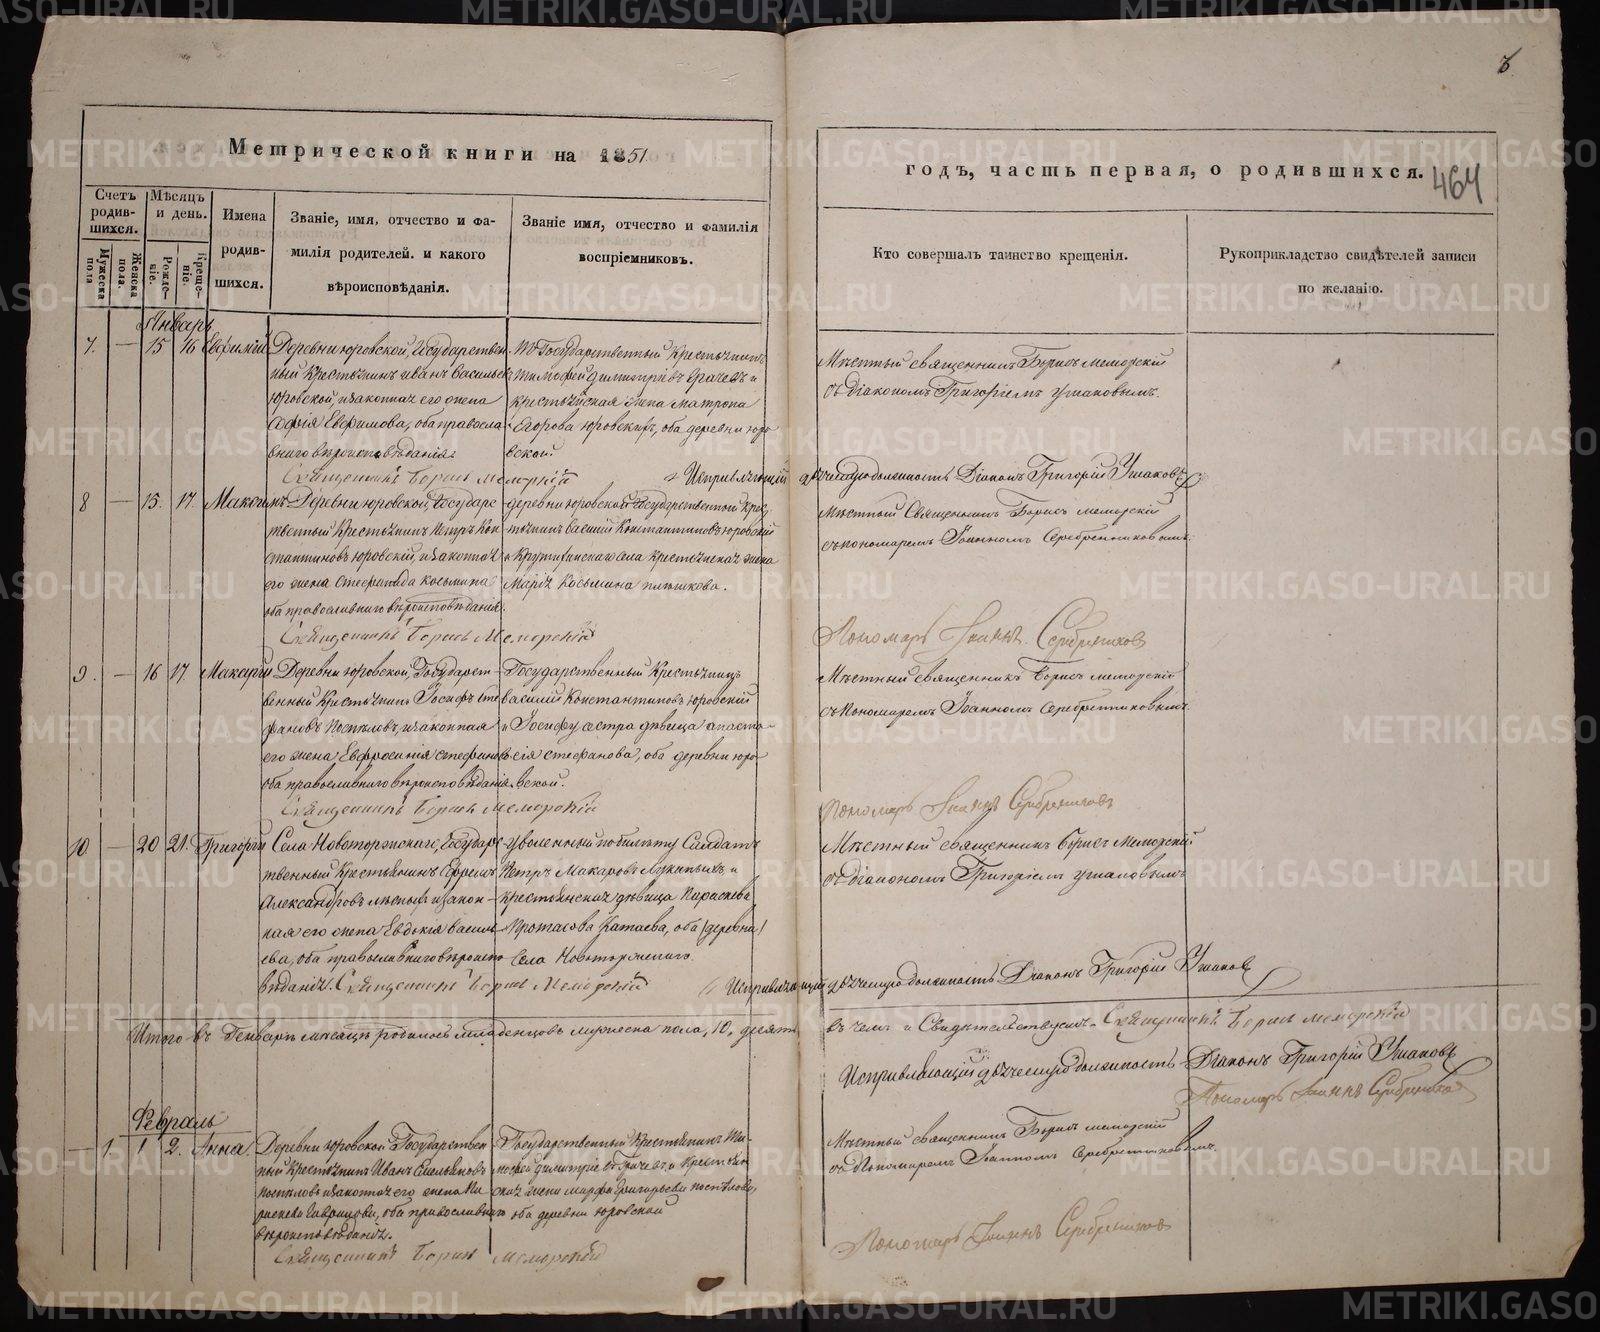 Метрической книги на 1851.
годъ, часть первая, о родившихся.
464
Счетъ родив-шихся.
Мужеска пола
Женска пола.
Мѣсяцъ и день.
Рожде-ніе.
Креще-ніе.
Имена родив-шихся.
Званіе, имя, отчество и фа-
милія родителей. и какого
вѣроисповѣданія.
Званіе имя, отчество и фамилія
воспріемниковъ.
Кто совершалъ таинство крещенія.
Рукоприкладство свидѣтелей записи
по желанію.
Январь
7. — 15 16 Евфимій
Деревни Юровской, Государствен
ный Крестьянинъ Иванъ Васильевъ
Юровской, и законная его жена
Софія Евфимова, оба правосла
внаго вѣроисповѣданія
Священникъ Борисъ Меморскій
Государственный Крестьянинъ
Тимофей Димитріевъ Грачевъ и
крестьянская жена Матрона
Егорова Юровскихъ, оба деревни Юро
вской
Мѣстный священникъ Борисъ Меморскій
съ діакономъ Григоріемъ Ушаковымъ.
Исправляющій дьяческую должность Діаконъ Григорій Ушаковъ
8 — 15. 17. Максимъ
Деревни Юровской, Государс
твенный Крестьянинъ Петръ Кон
стантиновъ Юровскій, и законная
его жена Стефанида Косьмина
оба православнаго вѣроисповѣданія.
Священникъ Борисъ Меморскій
деревни Юровской Государственной Крес
тьянинъ Василій Константиновъ Юровскій
и Крутихинскаго села крестьянская жена
Марія Косьмина
Мѣстный Священникъ Борисъ Меморскій
съ пономаремъ Іоанномъ Серебренниковымъ.
Пономарь Іоаннъ Серебрениковъ
9. — 16 17. Макарій
Деревни Юровской, Государст
венный Крестьянинъ Іосифъ Сте
фановъ Поспѣловъ, и законная
его жена Евфросинія Стефанова
оба православнаго вѣроисповѣданія
Священникъ Борисъ Меморскій
Государственный Крестьянинъ
Василій Константиновъ Юровскій
и Іосифу сестра дѣвица Анаста-
сія Стефанова, оба деревни Юро-
вской.
Мѣстный священникъ Борисъ Меморскій
съ Пономаремъ Іоанномъ Серебренниковымъ.
Пономарь Іоаннъ Серебрениковъ
10 — 20 21. Григорій
Села Новоторжскаго, Государс
твенный Крестьянинъ Ефремъ
Александровъ и закон-
ная его жена Евдокія Василь
ева, оба православнаго вѣроиспо
вѣданія. Священникъ Борисъ Меморскій
Уволенный по билету Салдатъ
Петръ Макаровъ и
крестьянская дѣвица Параскева
Протасова Катаева, оба (деревни)
Села Новоторжскаго.
Мѣстный священникъ Борисъ Меморскій
съ діакономъ Григоріемъ Ушаковымъ
Исправляющій дьяческую должность Діаконъ Григорій Ушаковъ
Итого въ Генварѣ мѣсяцѣ родилось младенцовъ мужеска пола, 10, десять
въ чемъ и Свидѣтельствуемъ. Священникъ Борисъ Меморскій
Исправляющій дьяческую должность Діаконъ Григорій Ушаковъ
Пономарь Іоаннъ Серебрениковъ
Февраль
— 1. 1 2. Анна.
Деревни Юровской Государствен
ный Крестьянинъ Иванъ
Поспѣловъ и законная его жена Па
раскева оба православнаго
вѣроисповѣданія.
Священникъ Борисъ Меморскій
Государственный Крестьянинъ Ти-
мофей Димитріевъ Грачевъ и Крестьян
ская жена Марфа Григорьева Поспѣлова,
оба деревни Юровской
Мѣстный священникъ Борисъ Меморскій
съ Пономаремъ Іоанномъ Серебренниковымъ.
Пономарь Іоаннъ Серебрениковъ
METRIKI.GASO-URAL.RU